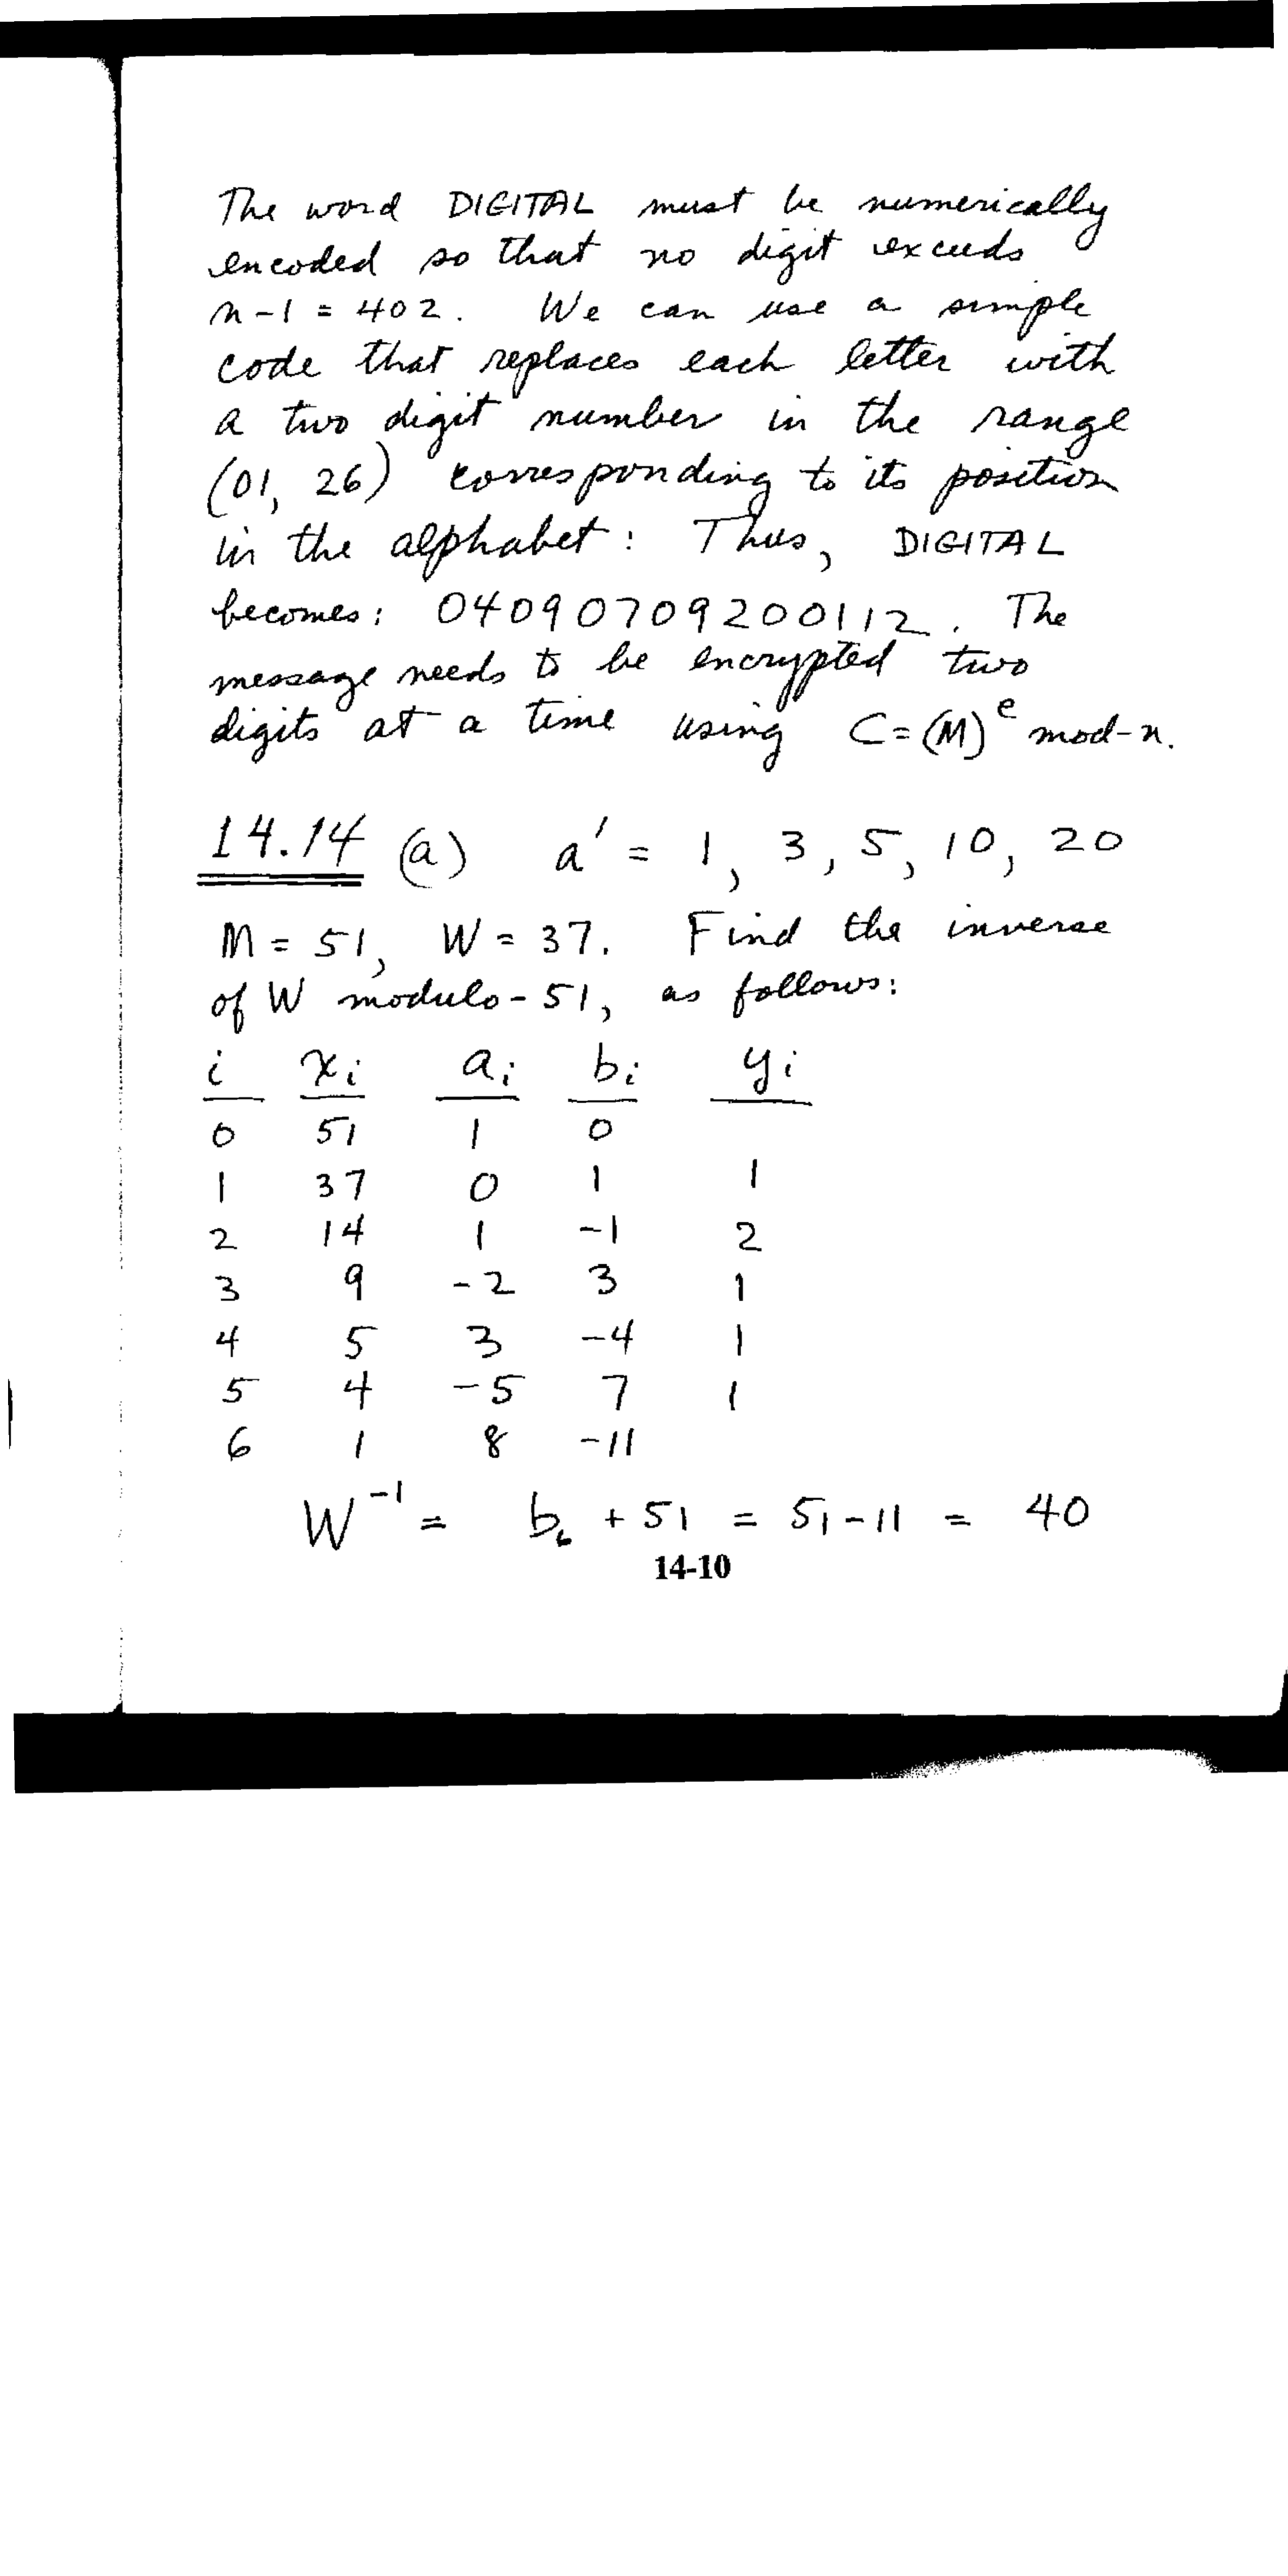 The word DIGITAL must be numerically
encoded so that no digit exceeds
n-1 = 402. We can use a simple
code that replaces each letter with
a two digit number in the range
(01, 26) corresponding to its position
in the alphabet: Thus, DIGITAL
becomes: 04090709200112. The
message needs to be encrypted two
digits at a time using C=(M)^e mod-n.
14.14 (a) a' = 1, 3, 5, 10, 20
M = 51, W = 37. Find the inverse
of W modulo-51, as follows:
i x_i a_i b_i y_i
0 51 1 0
1 37 0 1 1
2 14 1 -1 2
3 9 -2 3 1
4 5 3 -4 1
5 4 -5 7 1
6 1 8 -11
W^-1 = b_6 + 51 = 51-11 = 40
14-10